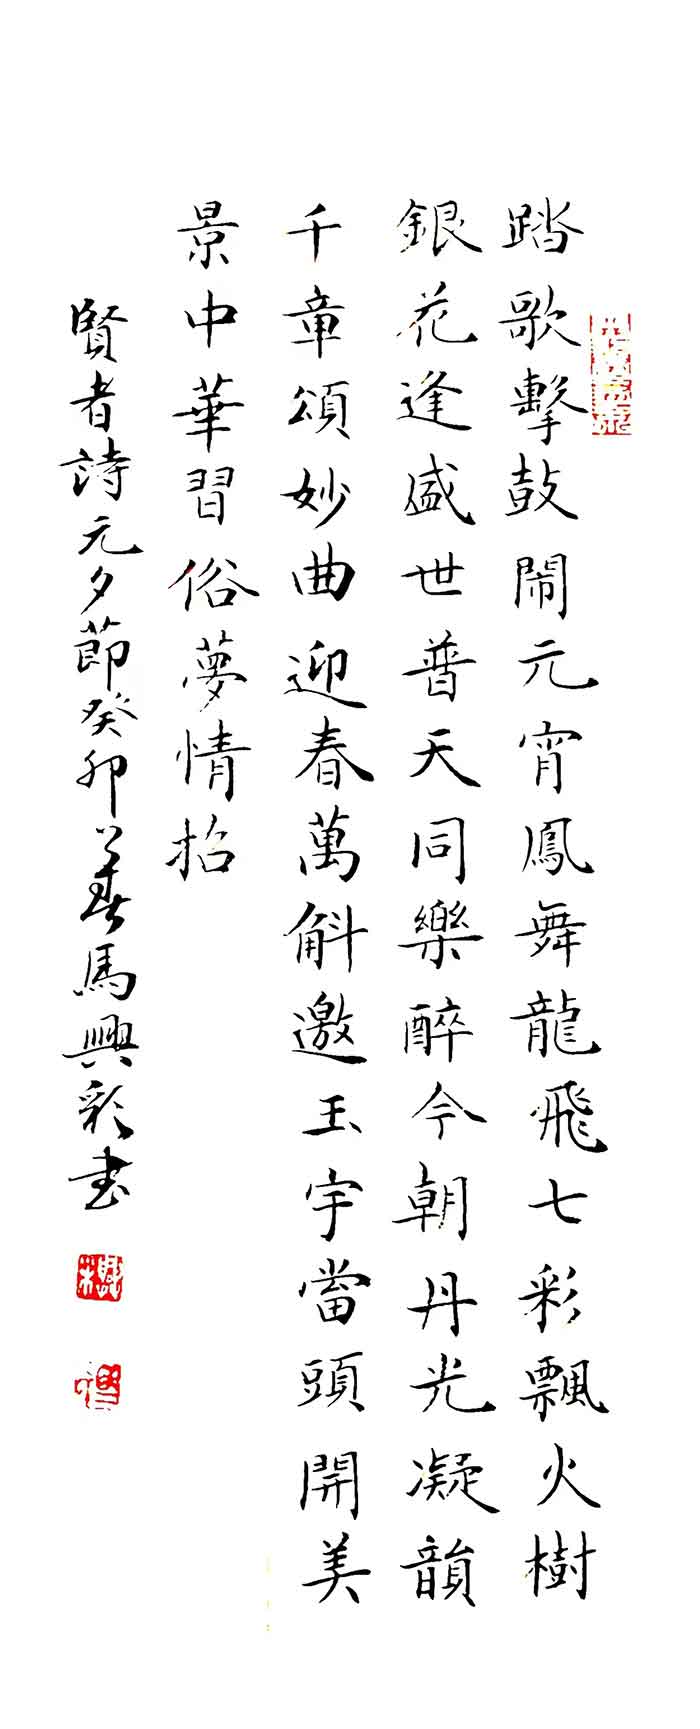 踏歌擊鼓鬧元宵鳳舞龍飛七彩飄火樹
銀花逢盛世普天同樂醉今朝丹光凝韻
千章頌妙曲迎春萬斛邀玉宇當頭開美
景中華習俗夢情招
賢者詩元夕節癸卯年春馬興彩書